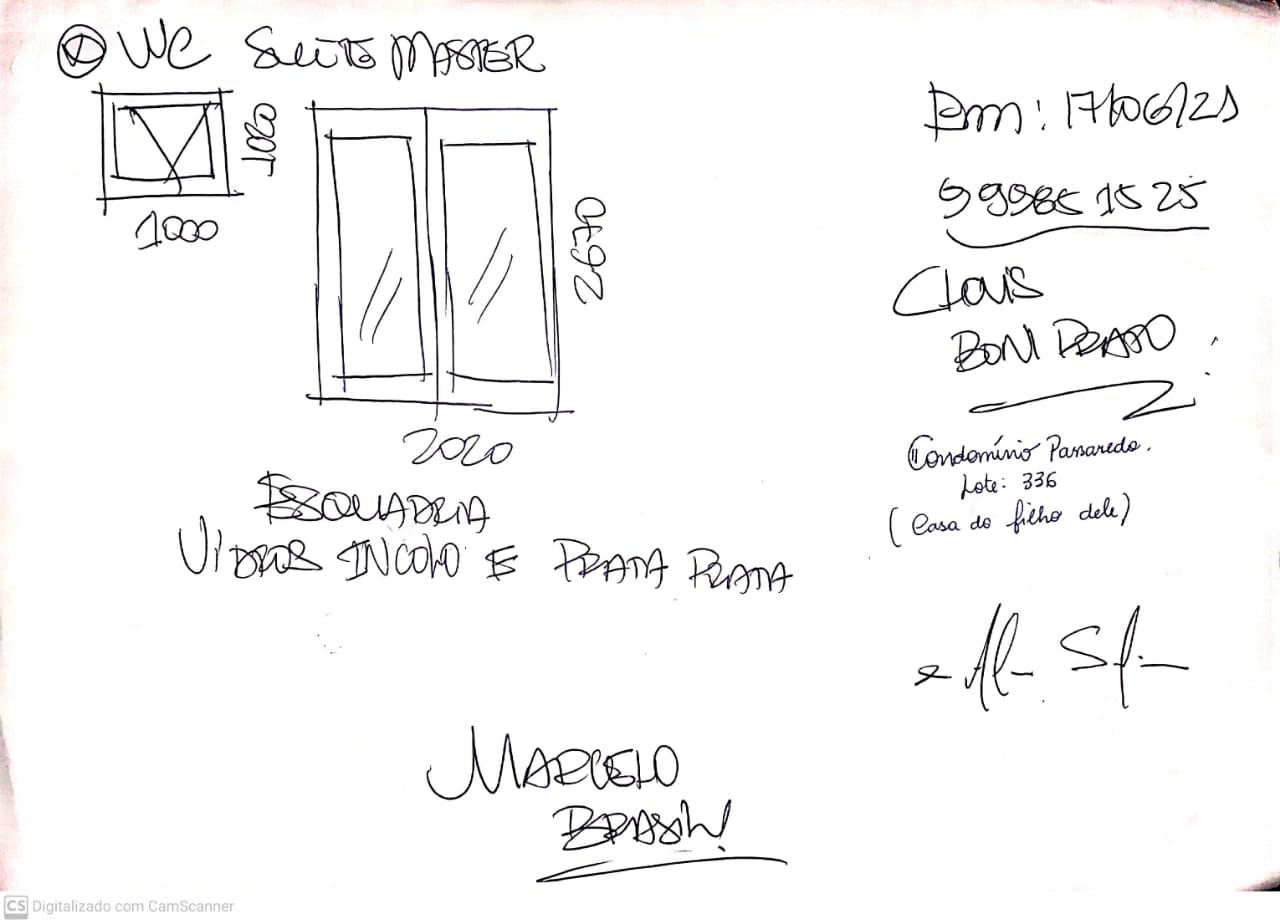 WC SUITE MASTER
1020
1000
2670
2020
ESQUADRIA
VIDROS INCOLO E PRATA PRATA
Em: 17/06/21
999851525
Clovis
BONI PRADO
Condomínio Passaredo.
Lote: 336
(Casa do filho dele)
MARCELO
BRASIL!
CS Digitalizado com CamScanner